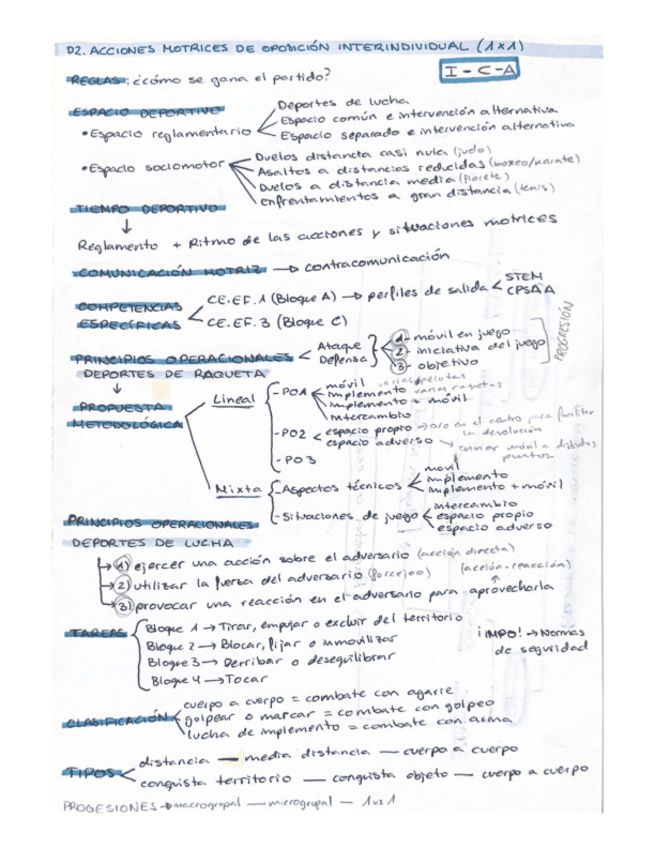 D2. ACCIONES MOTRICES DE OPOSICIÓN INTERINDIVIDUAL (1x1)
I - C - A
REGLAS: ¿cómo se gana el partido?
ESPACIO DEPORTIVO
• Espacio reglamentario
Deportes de lucha
Espacio común e intervención alternativa
Espacio separado e intervención alternativa
• Espacio sociomotor
Duelos distancia casi nula (judo)
Asaltos a distancias reducidas (boxeo/karate)
Duelos a distancia media (florete)
Enfrentamientos a gran distancia (tenis)
TIEMPO DEPORTIVO
↓
Reglamento + Ritmo de las acciones y situaciones motrices
COMUNICACIÓN MOTRIZ → contracomunicación
COMPETENCIAS ESPECÍFICAS
CE.EF.1 (Bloque A) → perfiles de salida < STEM CPSAA
CE.EF.3 (Bloque C)
PRINCIPIOS OPERACIONALES < Ataque Defensa
1- móvil en juego
2- iniciativa del juego
3- objetivo
PROGRESIÓN
DEPORTES DE RAQUETA
↓
PROPUESTA METODOLÓGICA
Lineal
-PO1
móvil varias pelotas
implemento varias raquetas
implemento + móvil
intercambio
-PO2
espacio propio → oro en el centro para facilitar la devolución
espacio adverso → enviar móvil a distintos puntos.
-PO3
Mixta
-Aspectos técnicos
movil
implemento
implemento + móvil
-Situaciones de juego
intercambio
espacio propio
espacio adverso
PRINCIPIOS OPERACIONALES
DEPORTES DE LUCHA
→ 1) ejercer una acción sobre el adversario (acción directa)
→ 2) utilizar la fuerza del adversario (forcejeo)
(acción-reacción)
→ 3) provocar una reacción en el adversario para aprovecharla
TAREAS
Bloque 1 → Tirar, empujar o excluir del territorio
Bloque 2 → Blocar, fijar o inmovilizar
Bloque 3 → Derribar o desequilibrar
Bloque 4 → Tocar
¡IMPO! → Normas de seguridad
CLASIFICACIÓN
cuerpo a cuerpo = combate con agarre
golpear o marcar = combate con golpeo
lucha de implemento = combate con arma
TIPOS
distancia — media distancia — cuerpo a cuerpo
conquista territorio — conquista objeto — cuerpo a cuerpo
PROGESIONES → macrogrupal — microgrupal — 1vs1